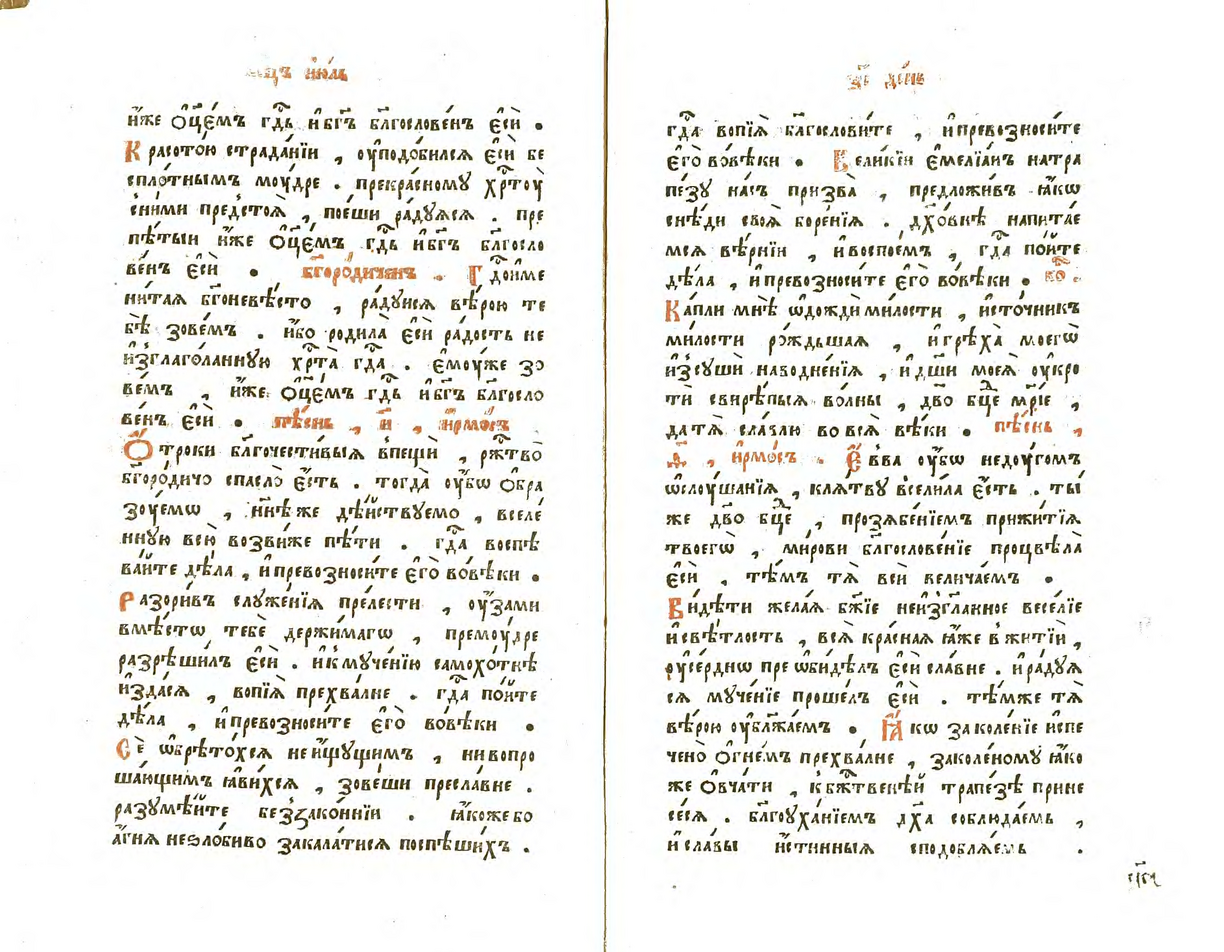 мцъ і҆ю́ль
и҆́же ѻ҆ц҃е́мъ гдⷭ҇ь и҆ бг҃ъ блг҃ослове́нъ є҆сѝ .
Красото́ю страда́нїи , ᲂу҆подо́билсѧ є҆сѝ бе
спло́тнымъ моу́дре . прекра́сному хрⷭ҇тоу̀
сни́ми предстоѧ̀ , пое́ши ра́дуѧсѧ . пре
пѣ́тыи и҆́же ѻ҆ц҃е́мъ гдⷭ҇ь и҆ бг҃ъ блг҃осло
ве́нъ є҆сѝ . бг҃оро́диченъ . Гдⷭ҇ои́ме
ни́таѧ бг҃оневѣ́сто , ра́дꙋисѧ вѣ́рою те
бѣ̀ зове́мъ . и҆́бо родила̀ є҆сѝ ра́дость не
и҆зглаго́ланнꙋю хрⷭ҇та̀ гдⷭ҇а . є҆моу́же зо
ве́мъ , и҆́же ѻ҆ц҃е́мъ гдⷭ҇ь и҆ бг҃ъ блг҃осло
ве́нъ є҆сѝ . пѣ́снь , и҃ , і҆рмо́съ
Ѻ҆́троки блг҃очести́выѧ впещѝ , ржⷭ҇тво̀
бг҃оро́дичо спасло̀ є҆́сть . тогда̀ ᲂу҆́бѡ ѻ҆бра
зꙋ́емѡ , нн҃ѣ же дѣ́йствꙋемо , вселе́
ннꙋю всю̀ возвиже пѣ́ти . гдⷭ҇а воспѣ
ва́ите дѣ́ла , и҆ превозноси́те є҆го̀ во́вѣки .
Разори́въ слꙋже́нїѧ пре́лести , ᲂу҆́зами
вмѣ́стѡ тебѐ держи́магѡ , премоу́дре
разрѣши́лъ є҆сѝ . и҆ к мꙋче́нїю самохо́тнѣ
и҆зда́сѧ , вопїѧ̀ прехва́лне . гдⷭ҇а по́ите
дѣ́ла , и҆ превозноси́те є҆го̀ во́вѣки .
Сѐ ѡ҆брѣто́хсѧ не и҆́щꙋщимъ , ни вопро
ша́ющимъ ꙗ҆ви́хсѧ , зове́ши пресла́вне .
разꙋмѣ́ите беззако́ннїи . ꙗ҆́коже бо
а҆́гнѧ неѕло́биво закала́тисѧ поспѣши́хъ .
и҃і де́нь
гдⷭ҇а вопїѧ̀ блг҃ослови́те , и҆ превозноси́те
є҆го̀ во́вѣки . Вели́кїи є҆мелїа́нъ на тра
пе́зꙋ на́съ призва̀ , предложи́въ ꙗ҆́кѡ
снѣ́ди своѧ̀ боре́нїѧ . дх҃о́внѣ напита́е
мсѧ вѣ́рнїи , и҆ воспое́мъ , гдⷭ҇а по́йте
дѣ́ла , и҆ превозноси́те є҆го̀ во́вѣки . бо .
Ка́пли мнѣ̀ ѡ҆дождѝ ми́лости , и҆сто́чникъ
ми́лости ро́ждьшаѧ , и҆ грѣха̀ моегѡ̀
и҆зсꙋшѝ наводне́нїѧ , и҆ дш҃и моеѧ̀ ᲂу҆кро
тѝ свирѣ́пыѧ во́лны , дв҃о бц҃е мр҃іе ,
да тѧ̀ сла́влю во всѧ̀ вѣ́ки . пѣ́снь ,
ѳ҃ , і҆рмо́съ . Є҆́вва ᲂу҆́бѡ недꙋ́гомъ
ѡ҆слꙋ́шанїѧ , клѧ́твꙋ всели́ла є҆́сть . ты́
же дв҃о бц҃е , прозѧбе́нїемъ прижи́тїѧ
твоегѡ̀ , ми́рови блг҃ослове́нїе процвѣла̀
є҆сѝ , тѣ́мъ тѧ̀ всѝ велича́емъ .
Ви́дѣти жела́ѧ бж҃їе неизгл҃анное весе́лїе
и҆ свѣ́тлость , всѧ̀ кра́снаѧ ꙗ҆́же в житїѝ ,
ᲂу҆се́рднѡ преѡби́дѣлъ є҆сѝ сла́вне . и҆ ра́дꙋѧ
сѧ мꙋче́нїе проше́лъ є҆сѝ . тѣ́мже тѧ̀
вѣ́рою ᲂу҆бл҃жа́емъ . Ꙗ҆́кѡ заколе́нїе испе
чено̀ ѻ҆гне́мъ прехва́лне , заколе́номꙋ ꙗ҆́ко
же ѻ҆вча́ти , к бжⷭ҇твенѣй трапе́зѣ прине
се́сѧ . блг҃оꙋха́нїемъ дх҃а соблюда́емь ,
и҆ сла́вы и҆́стинныѧ сподоблѧ́емь .